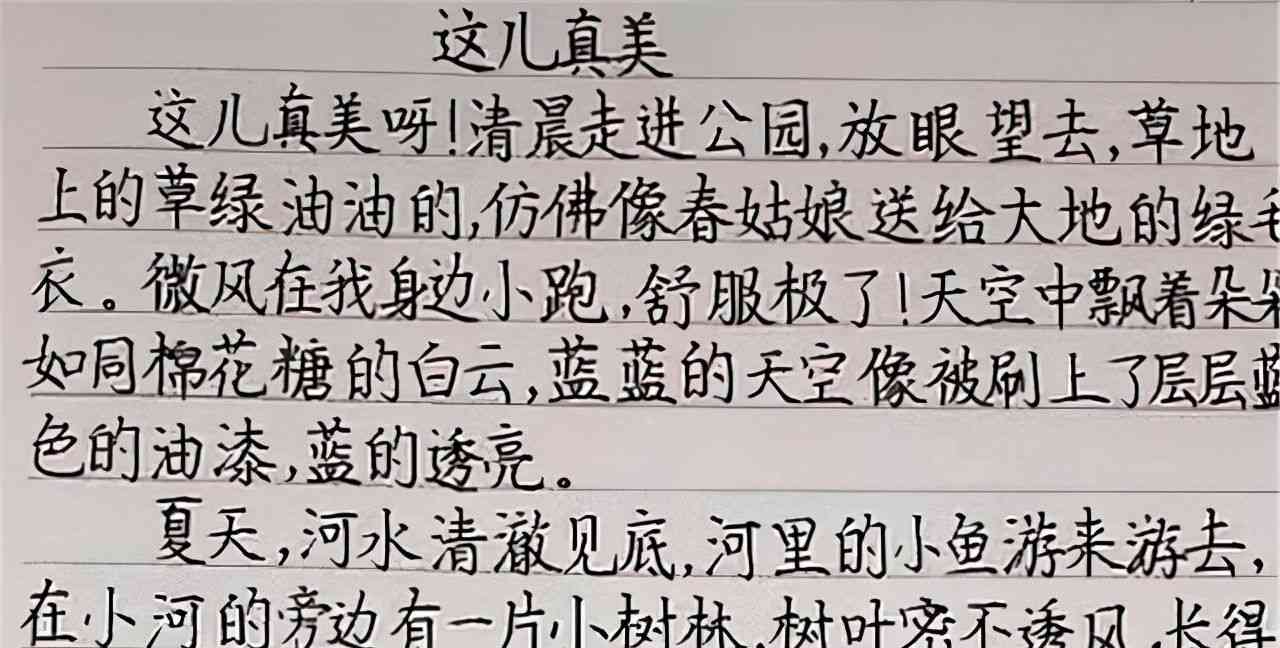 这儿真美
这儿真美呀！清晨走进公园，放眼望去，草地
上的草绿油油的，仿佛像春姑娘送给大地的绿毛
衣。微风在我身边小跑，舒服极了！天空中飘着朵朵
如同棉花糖的白云，蓝蓝的天空像被刷上了层层蓝
色的油漆，蓝的透亮。
夏天，河水清澈见底，河里的小鱼游来游去，
在小河的旁边有一片小树林，树叶密不透风，长得